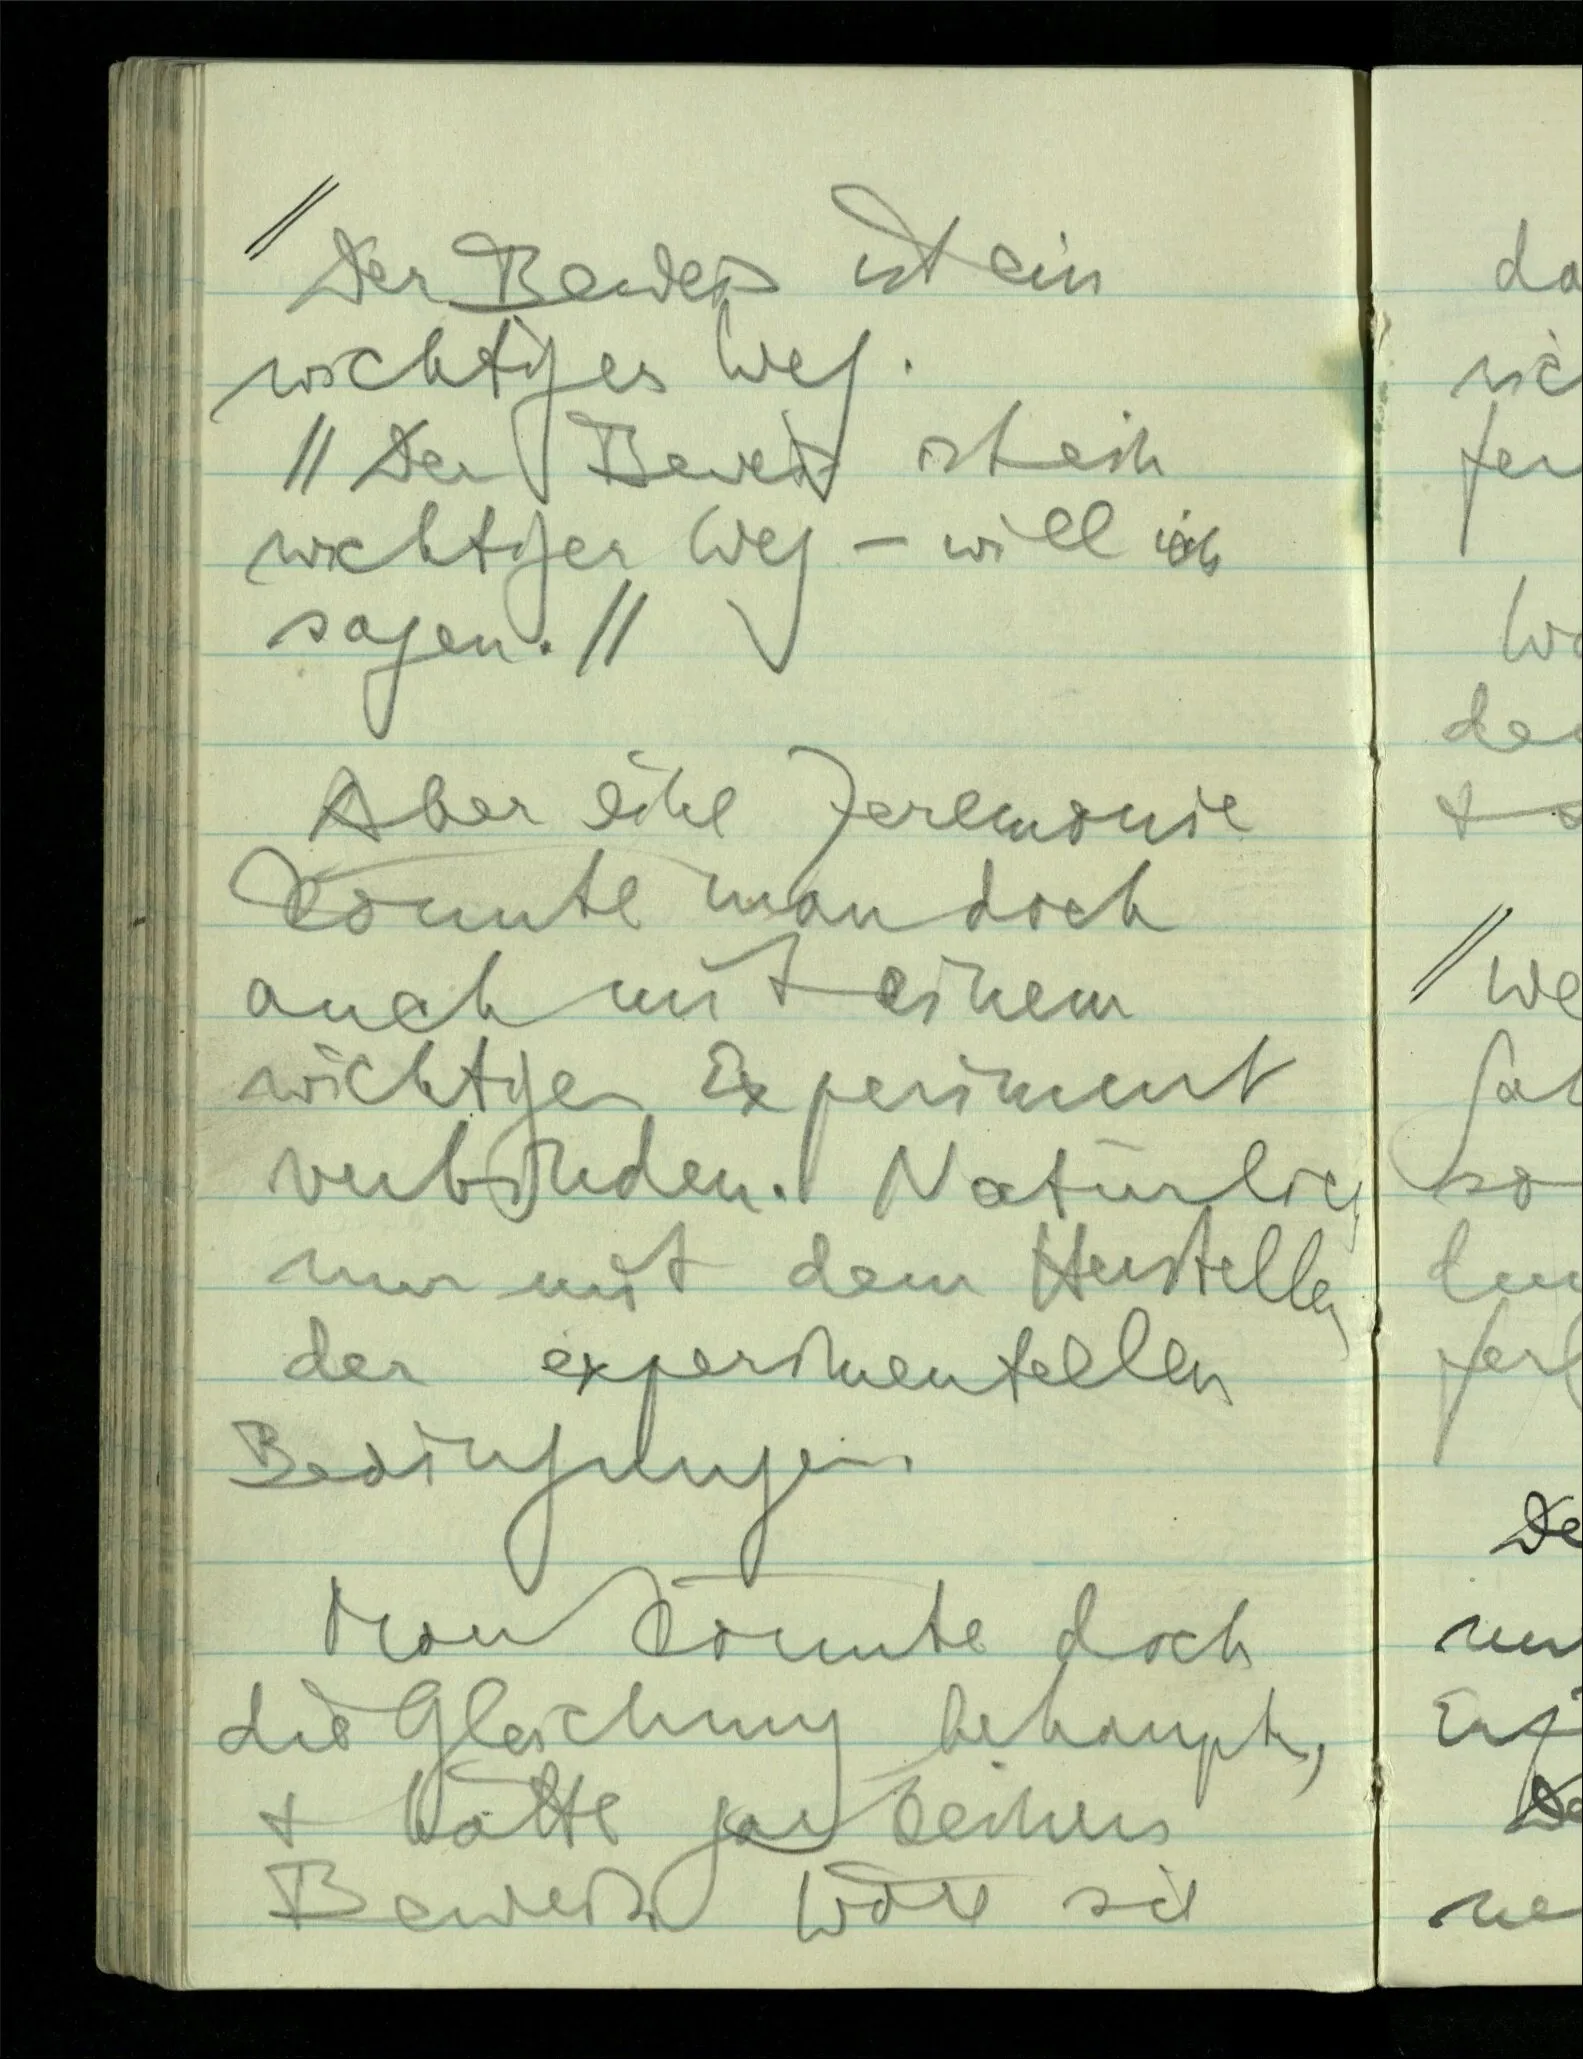 // Der Beweis ist ein
wichtiges Weg.
// Der Beweis ist ein
wichtiger Weg – will ich
sagen. //
Aber eine Zeremonie
könnte man doch
auch mit einem
wichtigen Experiment
verbinden. Natürlich
nur mit dem Herstellen
der experimentellen
Bedingungen.
Man könnte doch
die Gleichung behaupten,
& hätte gar keinen
Beweis. Wäre sie
da
nic
fer
Wa
de
& s
// We
so
De
nur
De
ne